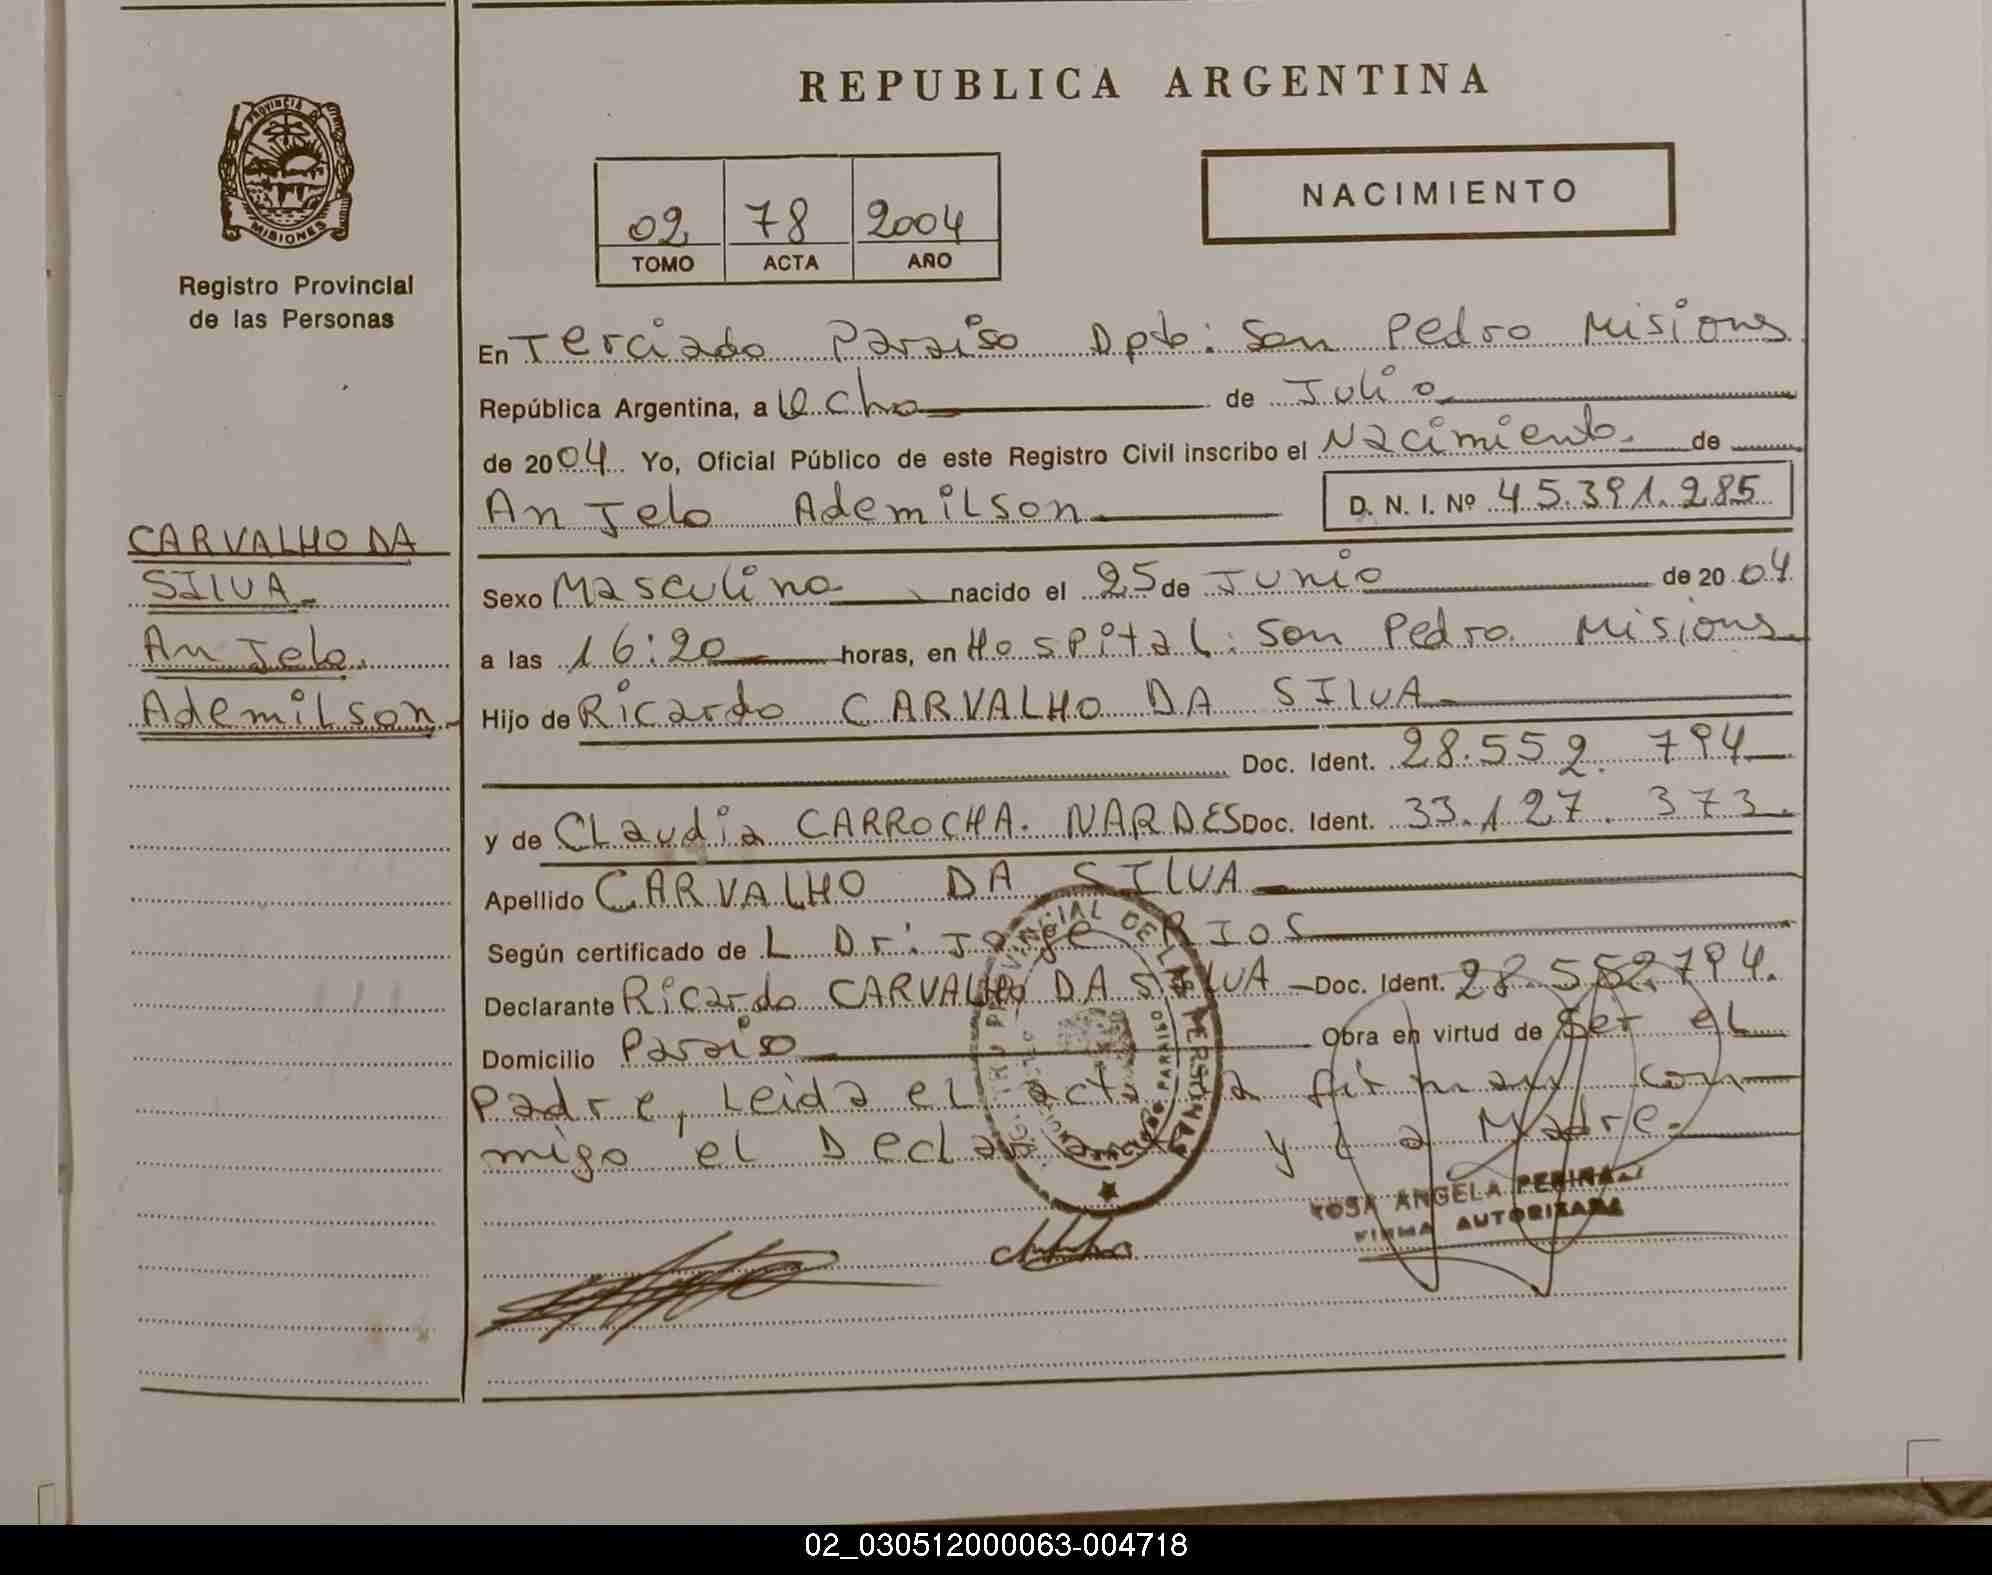 REPUBLICA ARGENTINA
PROVINCIA DE
MISIONES
Registro Provincial
de las Personas
02 78 2004
TOMO ACTA AÑO
NACIMIENTO
En Terciado Paraiso Dpto: San Pedro Misiones
República Argentina, a Ocho de Julio
de 2004 Yo, Oficial Público de este Registro Civil inscribo el Nacimiento. de
AnJelo Ademilson D. N. I. Nº 45.391.285
CARVALHO DA
SILVA
AnJelo.
Ademilson.
Sexo Masculino nacido el 25 de Junio de 2004.
a las 16:20 horas, en Hospital: San Pedro. Misiones
Hijo de Ricardo CARVALHO DA SILVA
Doc. Ident. 28.552.794
y de Claudia CARROCHA. NARDES Doc. Ident. 33.127.373.
Apellido CARVALHO DA SILVA
Según certificado de L Dr: Jorge RIOS
Declarante Ricardo CARVALHO DA SILVA Doc. Ident. 28.552.794.
Domicilio Paraiso Obra en virtud de Ser el
Padre, Leida el acta la firman con
migo el Declarante y la Madre.
ROSA ANGELA
FIRMA AUTORIZADA
02_030512000063-004718